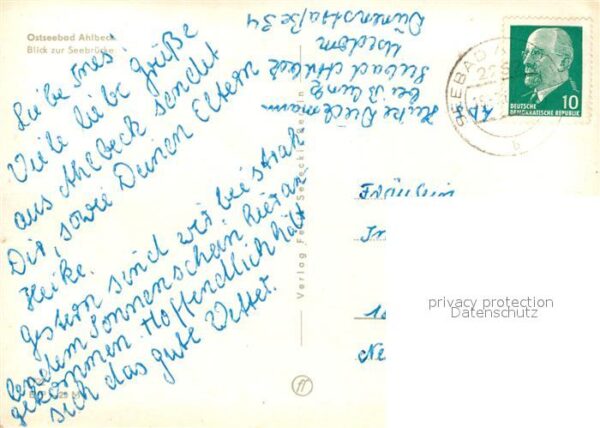 Ostseebad Ahlbeck
Blick zur Seebrücke
Liebe Ines!
Viele liebe Grüße
aus Ahlbeck sendet
Dir, sowie Deinen Eltern
Heike.
Gestern sind wir bei strah-
lendem Sonnenschein hier an-
gekommen. Hoffendlich hält
sich das gute Wetter.
Heike Dieckmann
bei
Seebad Ahlbeck
Usedom
Dünenstraße 34
Verlag
SEEBAD
DEUTSCHE
DEMOKRATISCHE REPUBLIK
10
Fräulein
privacy protection
Datenschutz